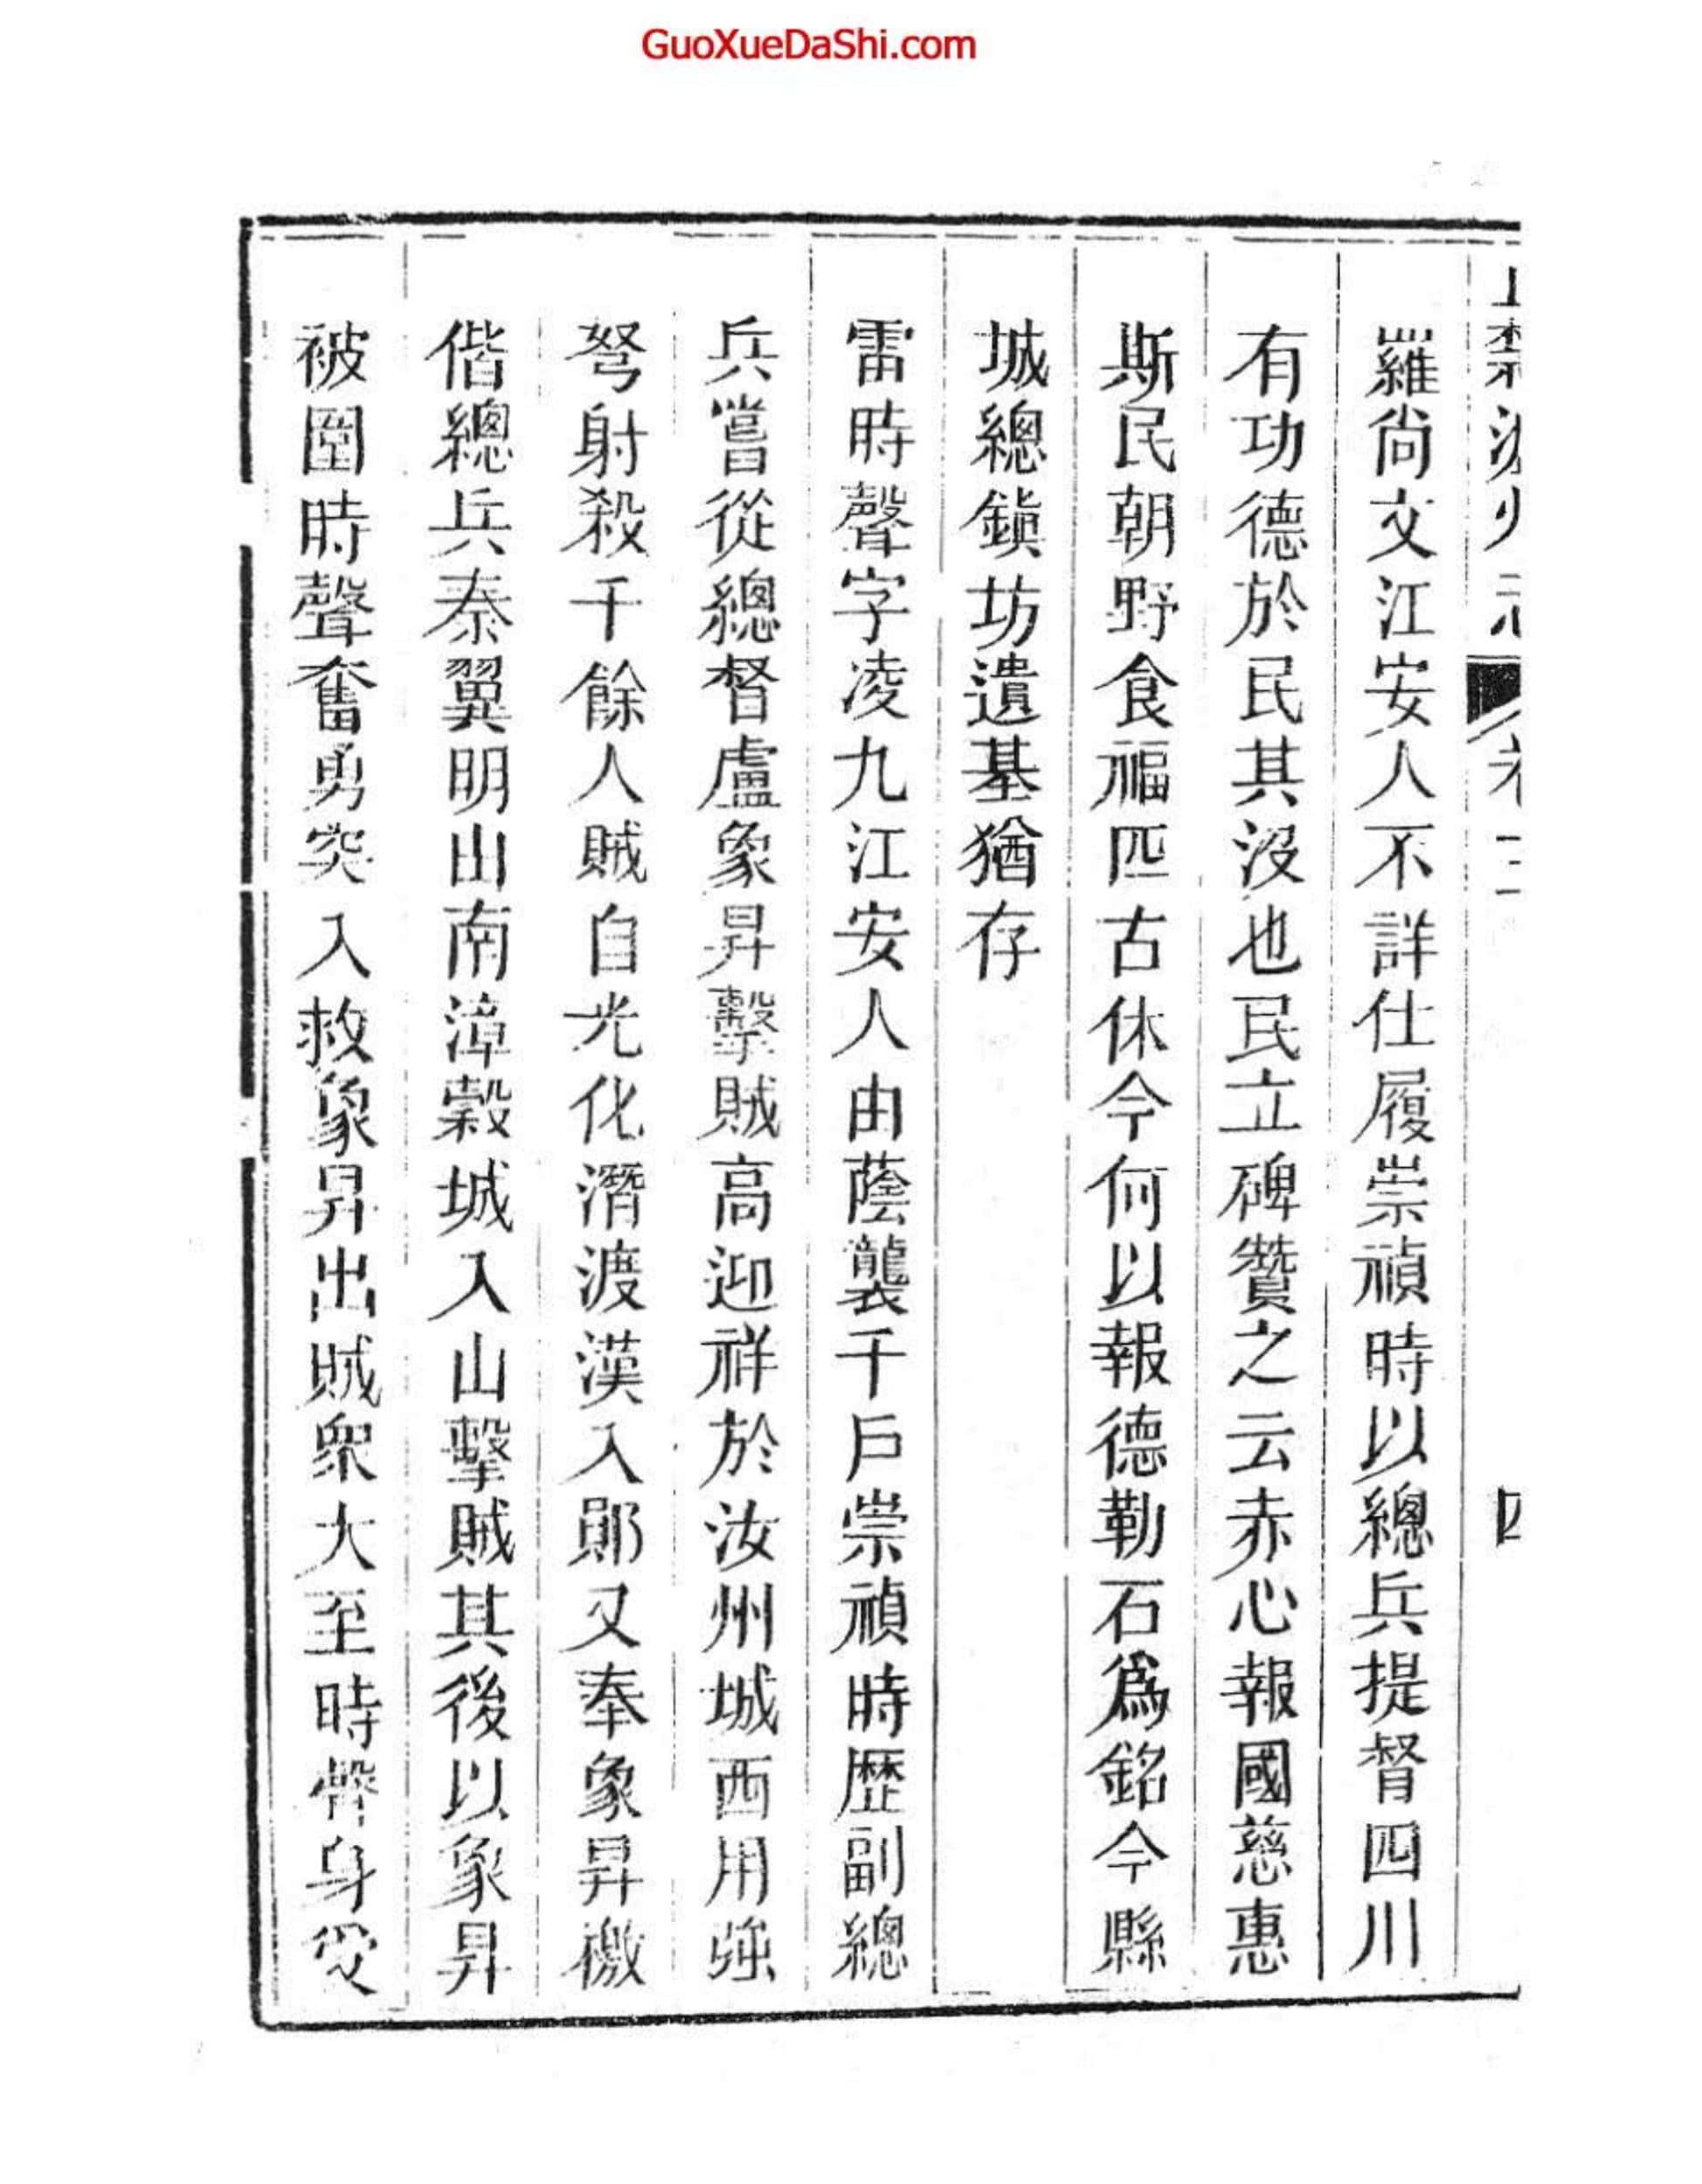 GuoXueDaShi.com
羅尙文江安人不詳仕履崇禎時以總兵提督四川
有功德於民其沒也民立碑贊之云赤心報國慈惠
斯民朝野食福匹古休今何以報德勒石爲銘今縣
城總鎭坊遺基猶存
雷時聲字凌九江安人由蔭襲千戶崇禎時歷副總
兵嘗從總督盧象昇擊賊高迎祥於汝州城西用强
弩射殺千餘人賊自光化潛渡漢入鄖又奉象昇檄
偕總兵秦翼明由南漳穀城入山擊賊其後以象昇
被圍時聲奮勇突入救象昇出賊衆大至時聲身受